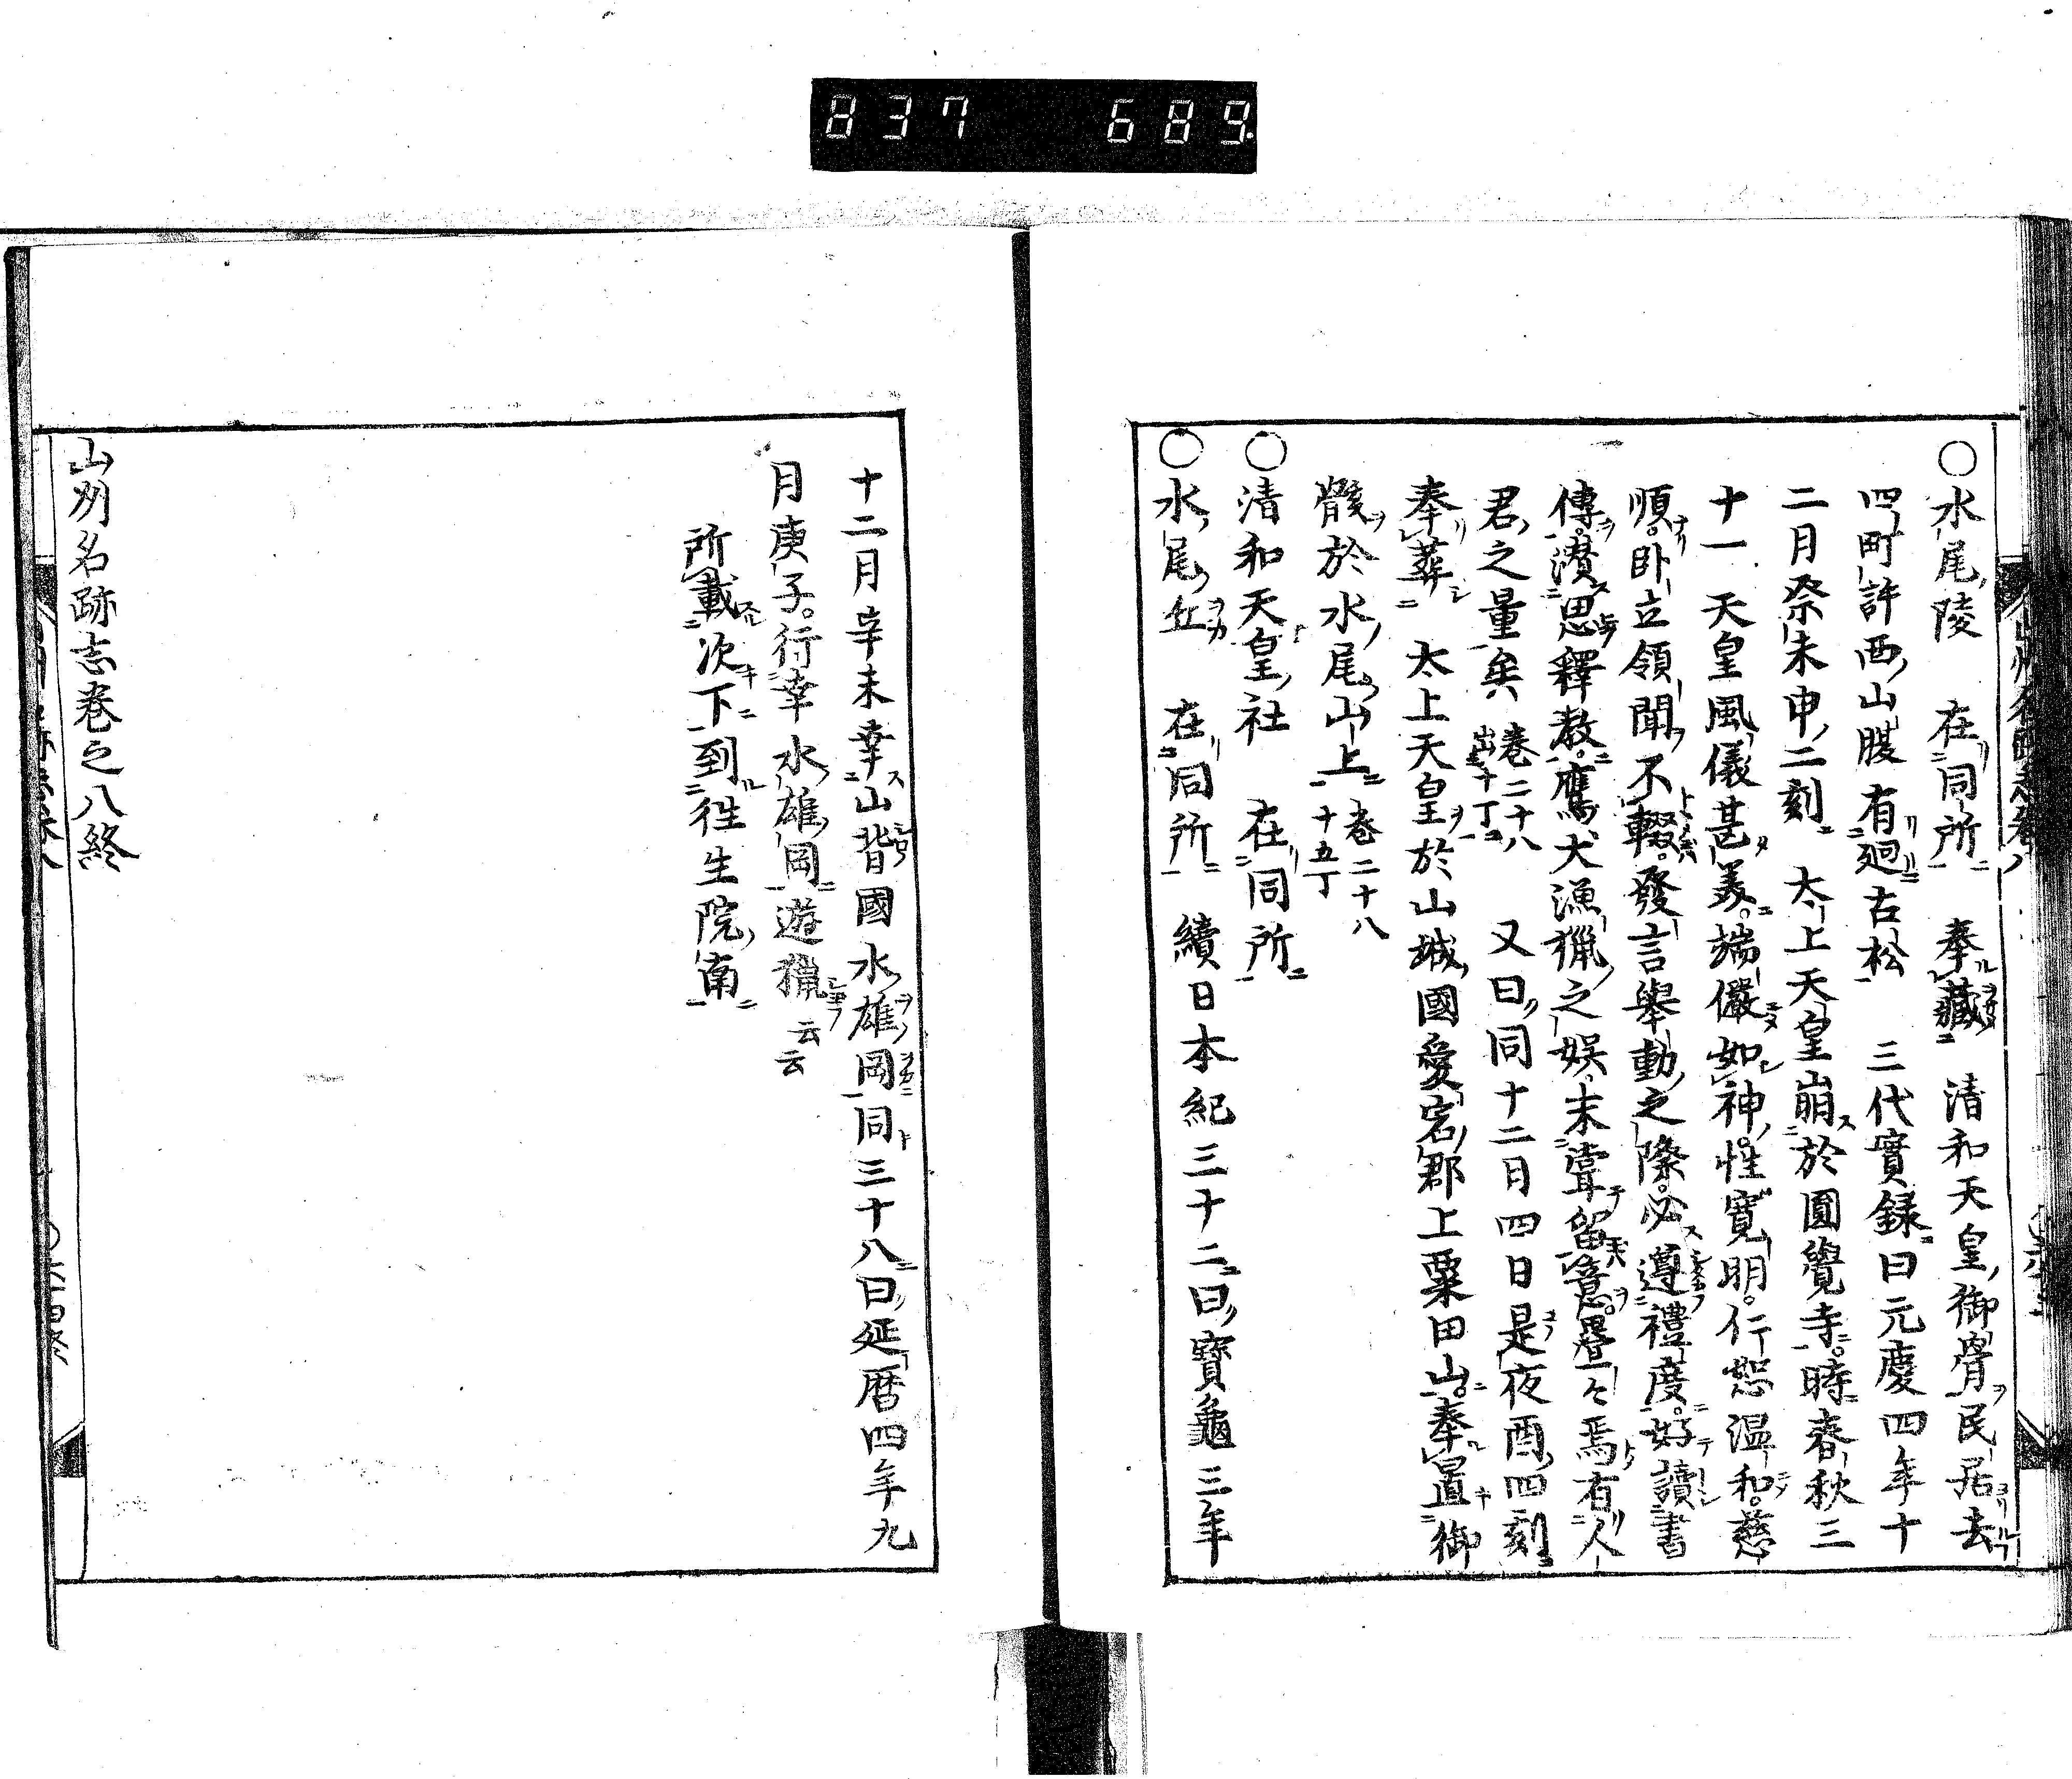 837 689.
○水尾陵 在同所 奉藏 清和天皇御骨民居去
四町許西山腹有廻古松 三代實録曰元慶四年十
二月癸未申二刻 太上天皇崩於圓覺寺時春秋三
十一 天皇風儀甚美端儼如神性寛明仁恕温和慈
順卧立領聞不輟發言舉動之際必遵禮度好讀書
傳濳思釋教鷹犬漁獵之娯未甞留意
君之量矣 巻二十八 又曰同十二月四日是夜酉四刻
奉葬 太上天皇於山城國愛宕郡上粟田山奉置御
骸於水尾山上 巻二十八
十五丁
○清和天皇社 在同所
○水尾丘 在同所 續日本紀三十二曰寳龜三年
十二月辛未幸山背國水雄岡同三十八曰延暦四年九
月庚子行幸水雄岡遊獵云云
所載次下到徃生院南
山刕名跡志巻之八終